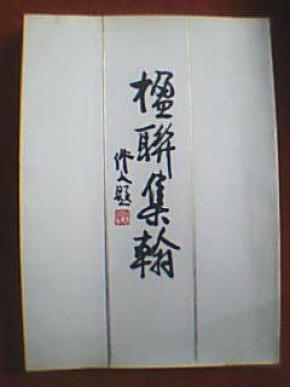 楹聯集翰
作人題